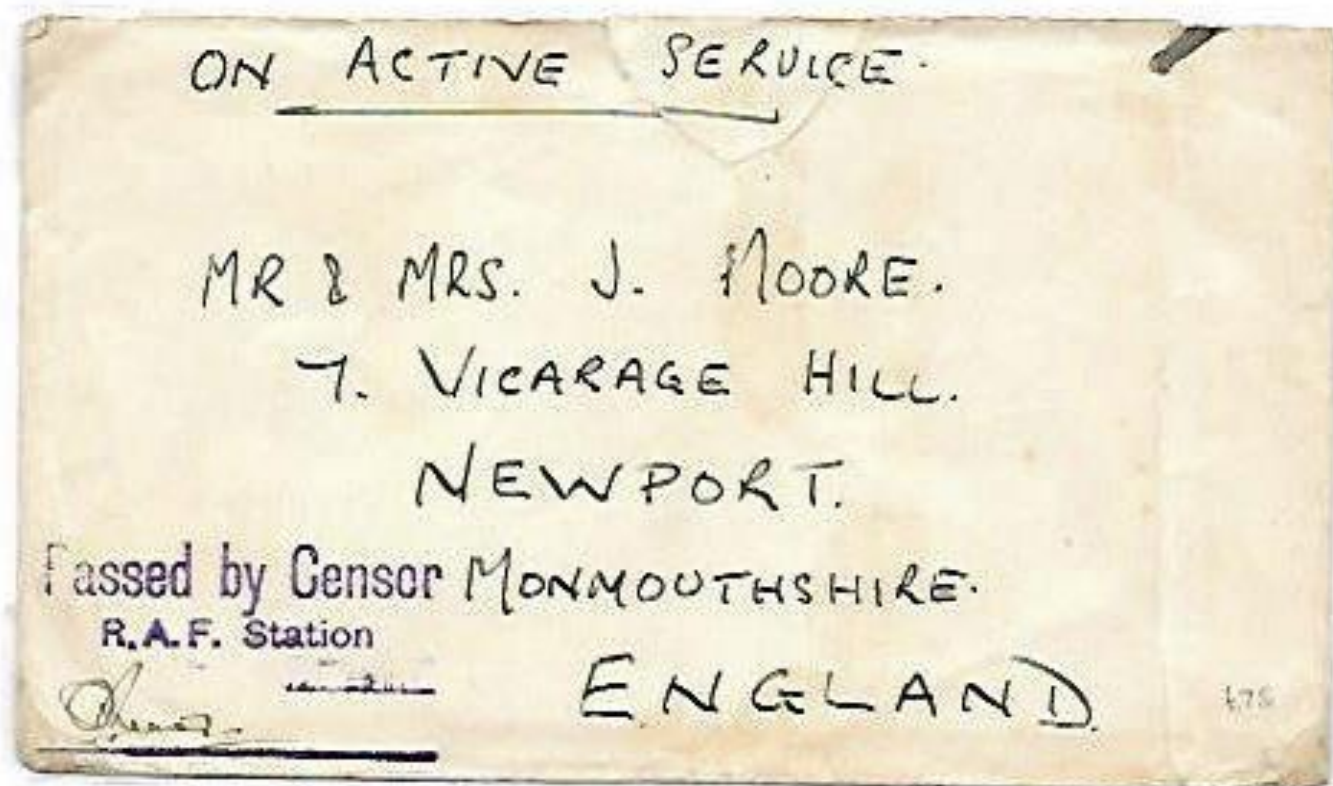 ON ACTIVE SERVICE.
MR & MRS. J. MOORE.
7. VICARAGE HILL.
NEWPORT.
MONMOUTHSHIRE.
ENGLAND
Passed by Censor
R.A.F. Station